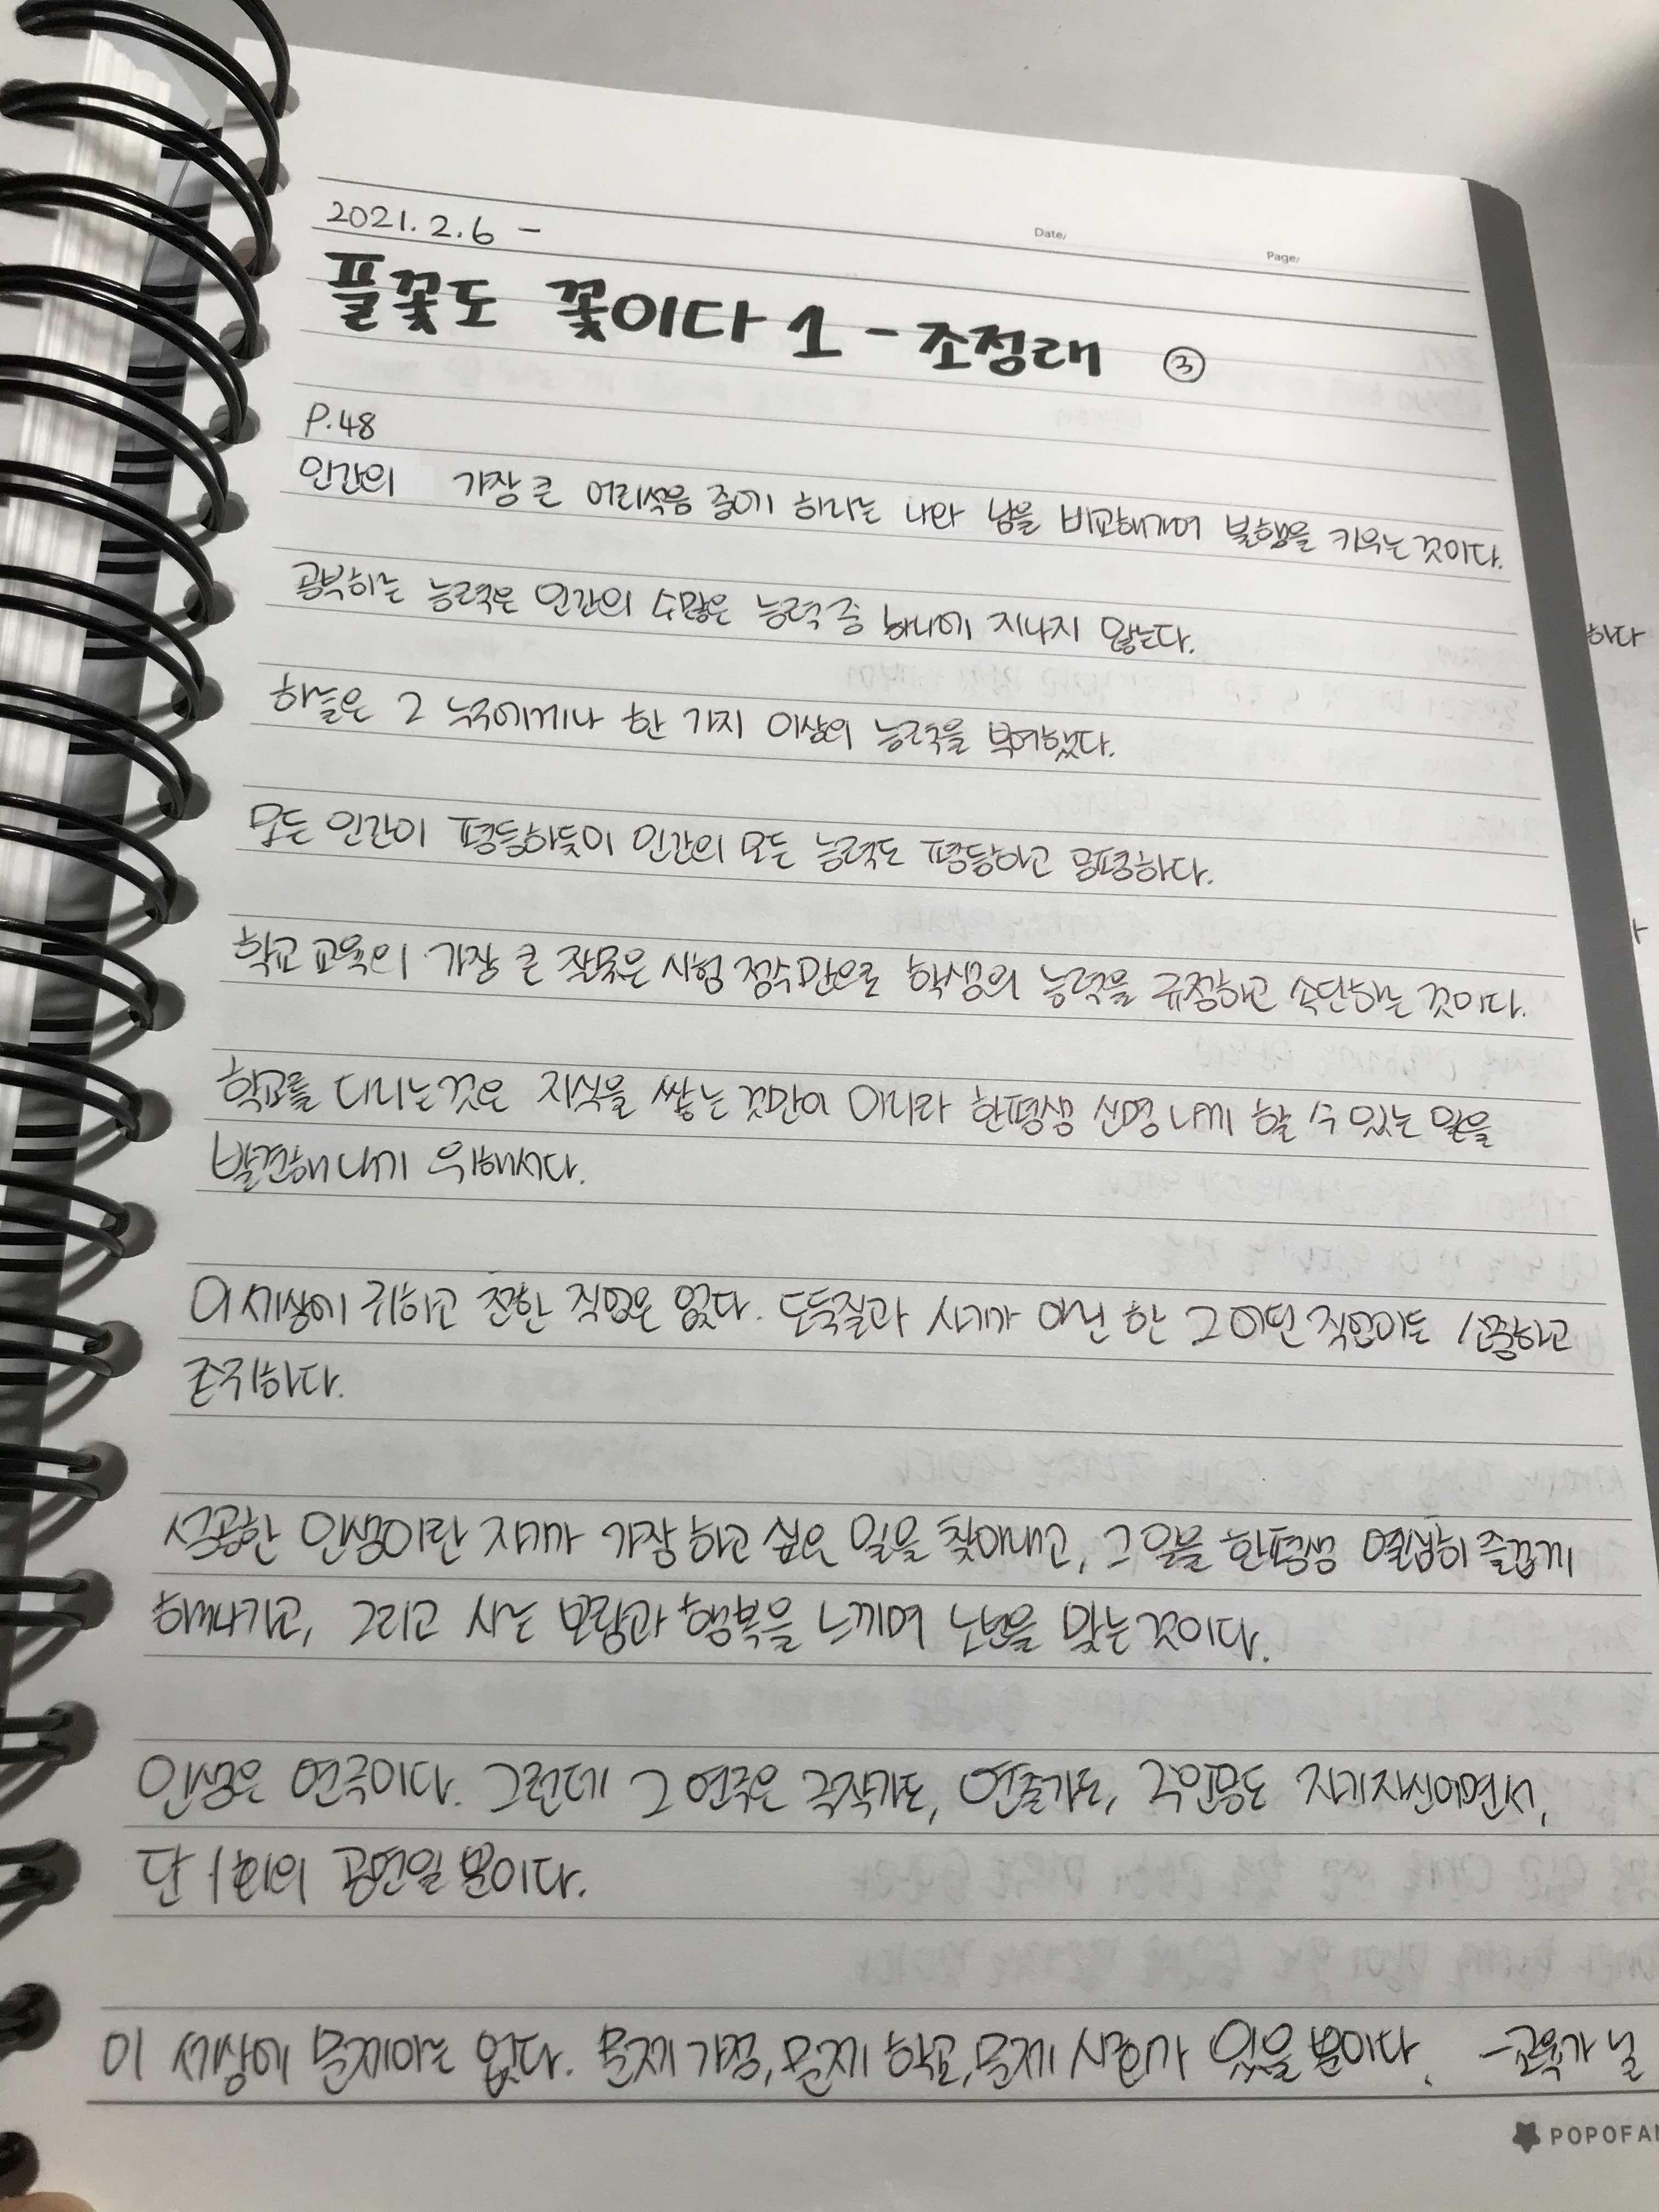 2021.2.6 -
Date/
Page/
풀꽃도 꽃이다 1 - 조정래 ③
P.48
인간의 가장 큰 어리석음 중에 하나는 나와 남을 비교해가며 불행을 키우는 것이다.
공부하는 능력은 인간의 수많은 능력 중 하나에 지나지 않는다.
하늘은 그 누구에게나 한 가지 이상의 능력을 부여했다.
모든 인간이 평등하듯이 인간의 모든 능력도 평등하고 공평하다.
학교 교육의 가장 큰 잘못은 시험 점수만으로 학생의 능력을 규정하고 속단하는 것이다.
학교를 다니는것은 지식을 쌓는 것만이 아니라 한평생 신명 나게 할 수 있는 일을
발견해 내기 위해서다.
이 세상에 귀하고 천한 직업은 없다. 도둑질과 사기가 아닌 한 그 어떤 직업이든 신중하고
존귀하다.
성공한 인생이란 자기가 가장 하고 싶은 일을 찾아내고, 그 일을 한평생 열심히 즐겁게
해나가고, 그리고 사는 보람과 행복을 느끼며 노년을 맞는것이다.
인생은 연극이다. 그런데 그 연극은 극작가도, 연출가도, 주인공도 자기자신이면서,
단 1회의 공연일 뿐이다.
이 세상에 문제아는 없다. 문제 가정, 문제 학교, 문제 사회가 있을 뿐이다. -교육가 닐
하다
POPOFAN